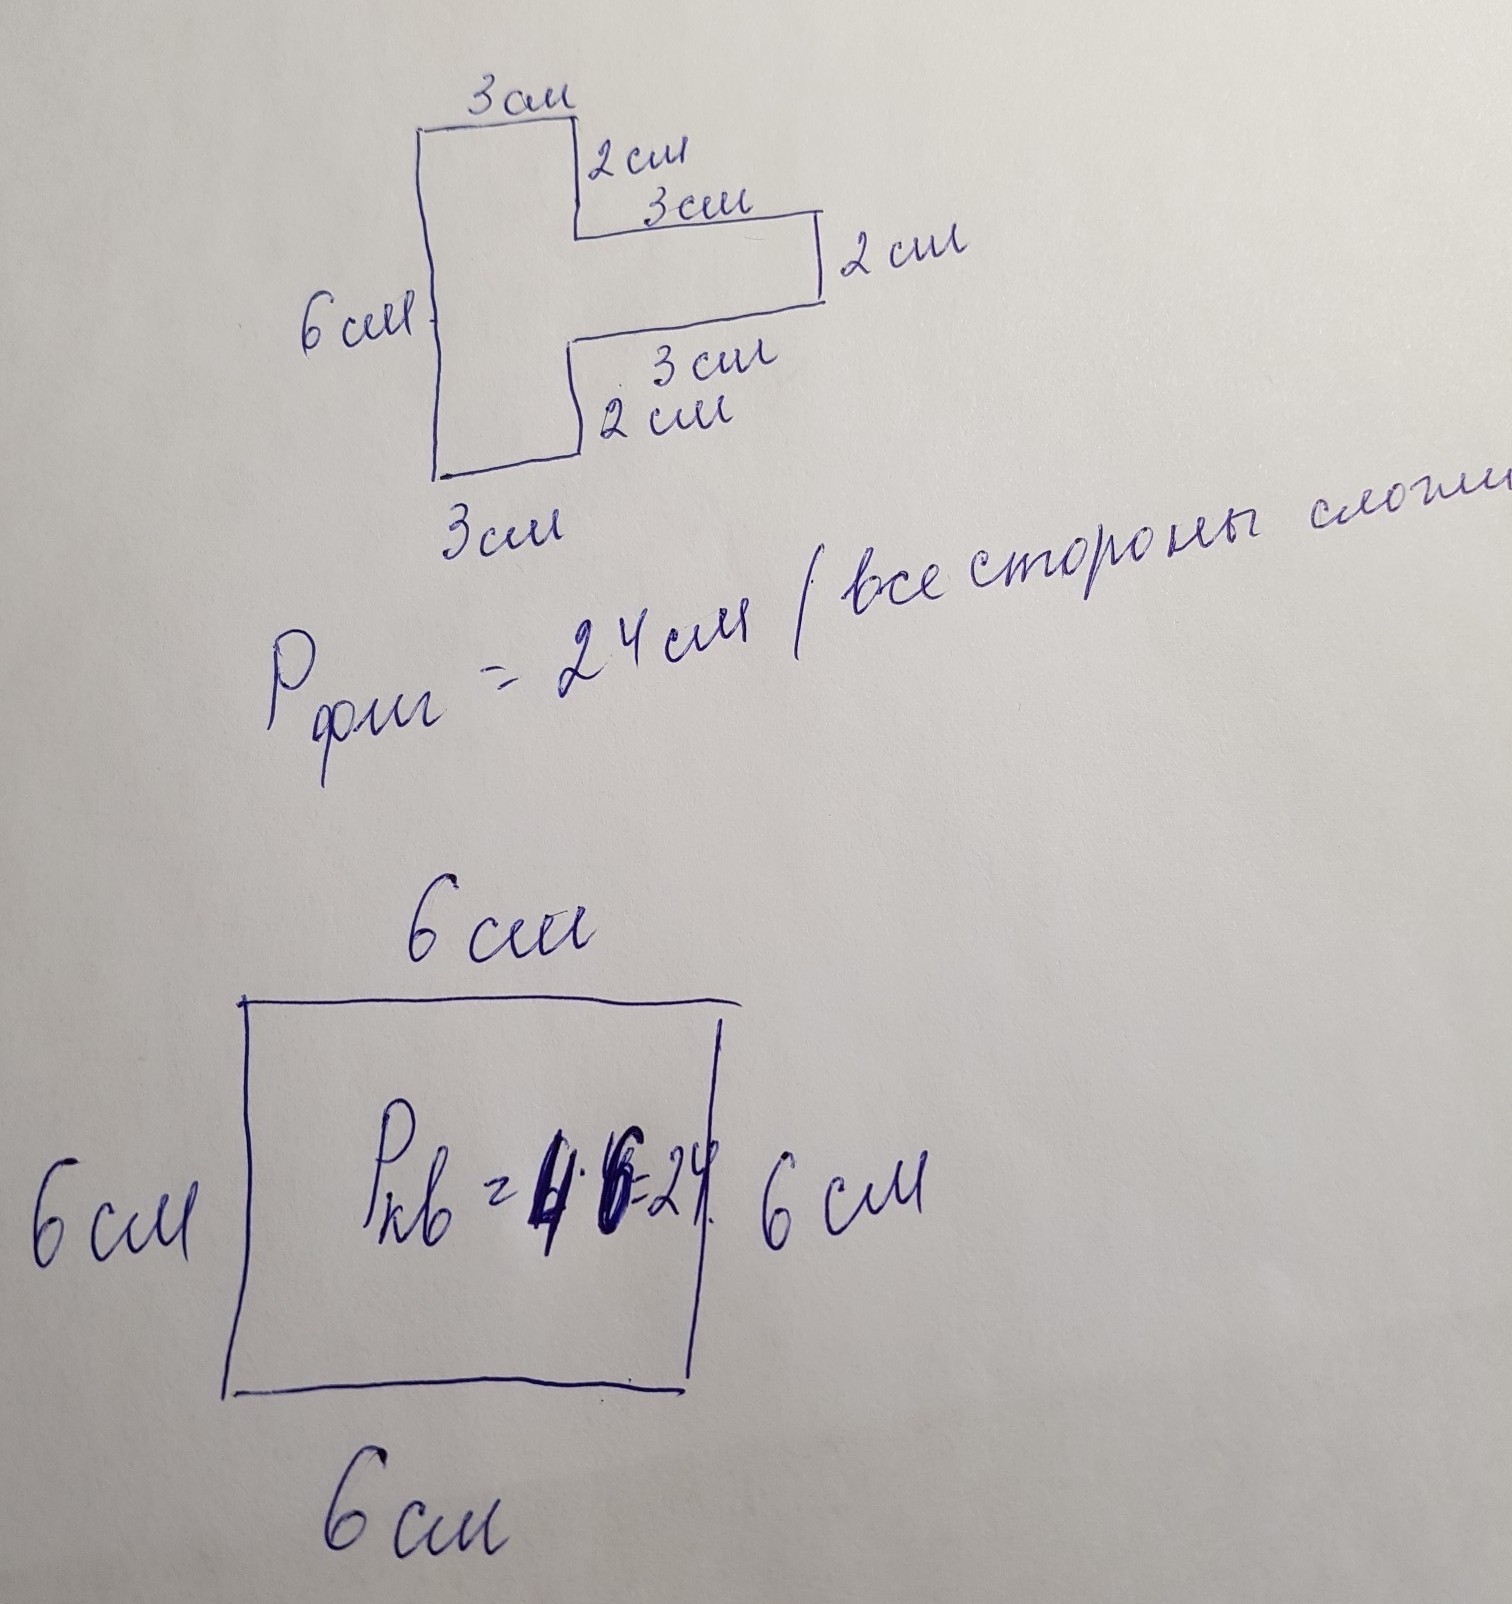 3 см
2 см
3 см
2 см
6 см
3 см
2 см
3 см
Pфиг = 24 см (все стороны
6 см
6 см
Pкв = 4·6=24
6 см
6 см